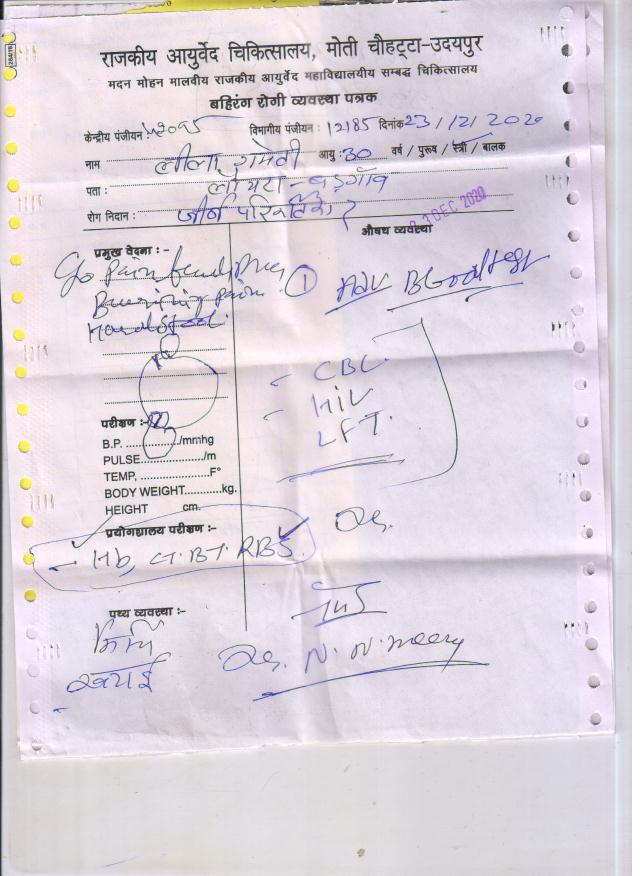 राजकीय आयुर्वेद चिकित्सालय, मोती चौहट्टा-उदयपुर
मदन मोहन मालवीय राजकीय आयुर्वेद महाविद्यालयीय सम्बद्ध चिकित्सालय
बहिरंग रोगी व्यवस्था पत्रक
केन्द्रीय पंजीयन: विभागीय पंजीयन : 12185 दिनांक 23/12/2020
नाम लीला गमेती आयु : 30 वर्ष / पुरूष / स्त्री / बालक
पता : लोयरा - बड़गाँव
रोग निदान : जीर्ण
DEC 2020
प्रमुख वेदना : - औषध व्यवस्था
Pain
Burning Pain
Hard Stool
① Adv Blood test
- CBC
- HIV
LFT.
परीक्षण :-
B.P. /mmhg
PULSE /m
TEMP, F°
BODY WEIGHT kg.
HEIGHT cm.
प्रयोगशालय परीक्षण :-
- Hb, CT. BT. RBS.
Dr.
पथ्य व्यवस्था :-
मिर्च
खटाई
Dr. N. N.